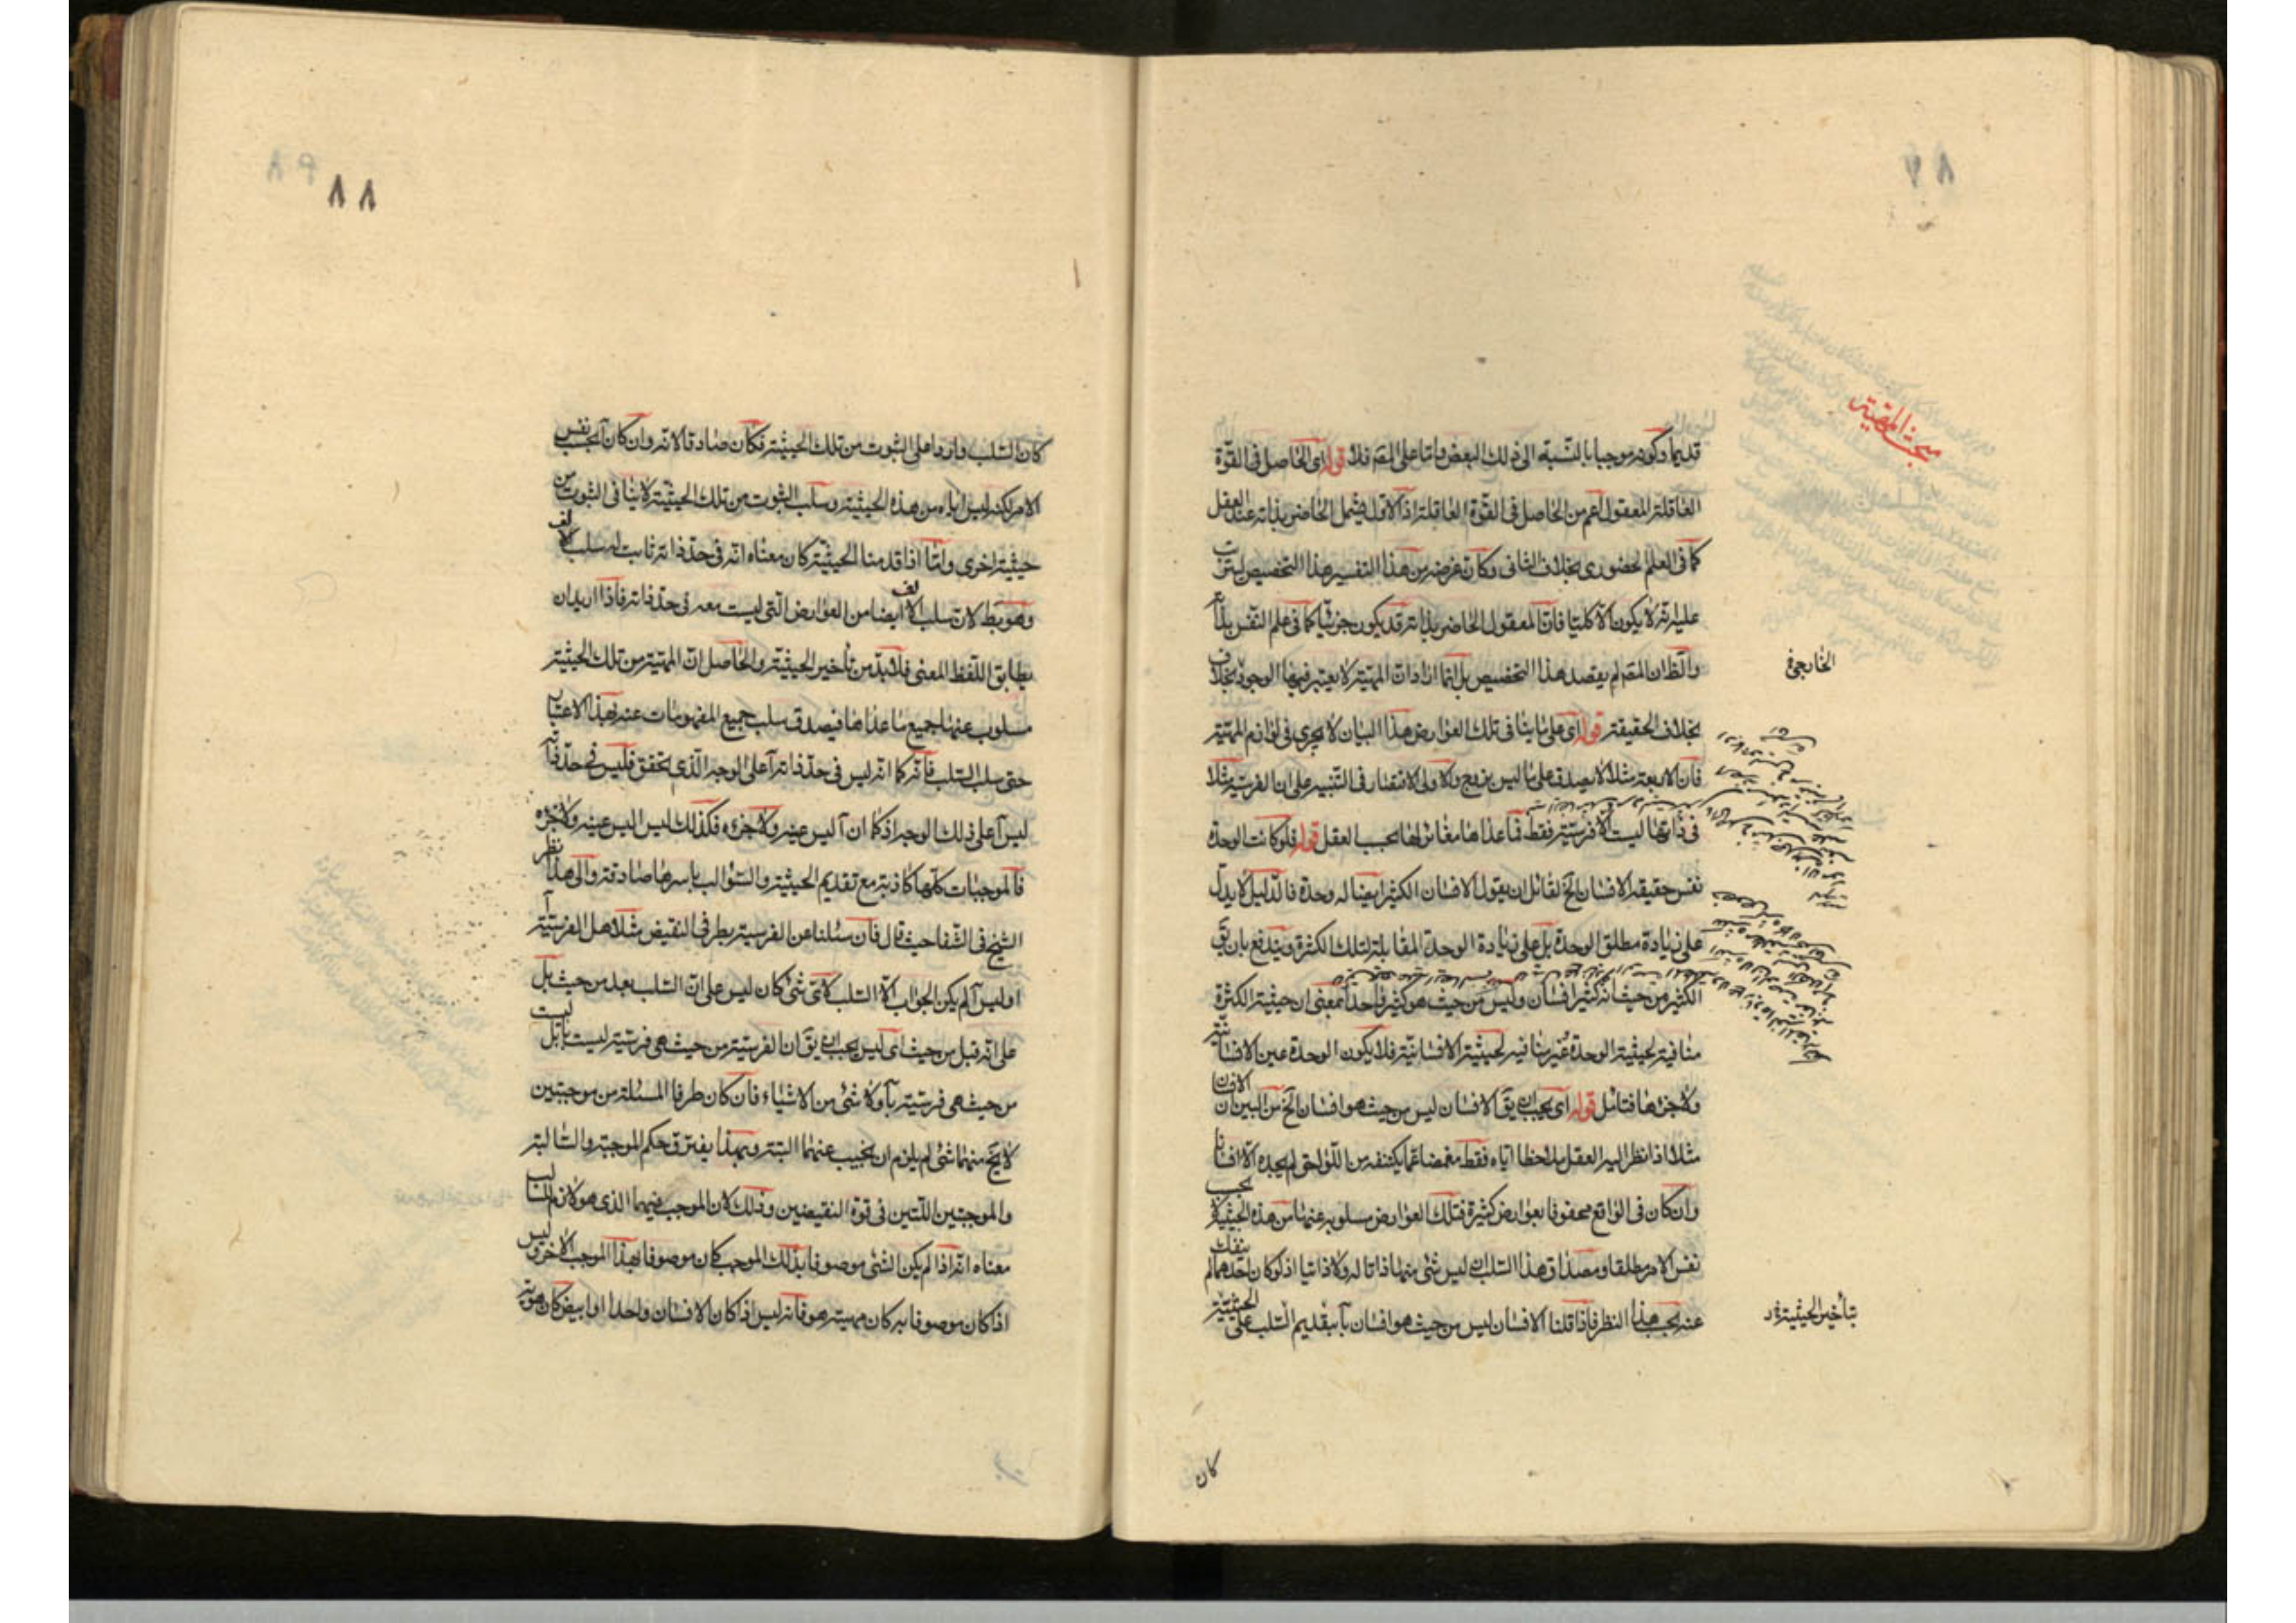 مبحث المهية
قديما وكونه موجبا بالنسبة الى ذلك البعض واما على المص فلا قوله اى الحاصل فى القوة
العاقلة المعقول اعم من الحاصل فى القوة العاقلة اذ الاول يشمل الحاضر بذاته عند العقل
كما فى العلم الحضورى بخلاف الثانى وكان غرضه من هذا التفسير هذا التخصيص ليترتب
عليه انه لا يكون الا كليا فان المعقول الحاضر بذاته قد يكون جزئيا كما فى علم النفس بذاته
والظ ان المص لم يقصد هذا التخصيص بل انما اراد ان المهية لا يعتبر فيها الوجود بخلاف
الخارجى
بخلاف الحقيقة قوله اى على ما ينافى تلك العوارض هذا البيان لا يجرى فى لوازم المهية
فان الاربعة مثلا لا يصدق على ما ليس بزوج والاولى الاقتصار فى التنبيه على ان الفرسية مثلا
فى ذاتها ليست الا فرسية فقط فما عداها مغاير لها بحسب العقل قوله فلو كانت الوحدة
نفس حقيقة الانسان الخ لقائل ان يقول الانسان الكثير ايضا له وحدة فالدليل لا يدل
على زيادة مطلق الوحدة بل على زيادة الوحدة المقابلة لتلك الكثرة ويندفع بان يق
الكثير من حيث انه كثير انسان وليس من حيث هو كثير واحدا بمعنى ان حيثية الكثرة
منافية لحيثية الوحدة غير منافية لحيثية الانسانية فلا يكون الوحدة عين الانسانية
ولا جزءها فتامل قوله اى يجب ان يق الانسان ليس من حيث هو انسان الخ من البين ان الانسان
مثلا اذا نظر اليه العقل ملاحظا اياه فقط مغمضا عما يكتنفه من اللواحق لم يجده الا انسانا
وان كان فى الواقع محفوفا بعوارض كثيرة فتلك العوارض مسلوبة عنها من هذه الحيثية لا بحسب
نفس الامر مطلقا ومصداق هذا السلب ان ليس شئ منها ذاتا له ولا ذاتيا اذ لو كان احدهما لم ينفك
عنه بحسب هذا النظر فاذا قلنا الانسان ليس من حيث هو انسان بآ بتقديم السلب على الحيثية
بتأخير الحيثية
كان
٨٨
كان السلب واردا على الثبوت من تلك الحيثية فكان صادقا لانه وان كان آ بحسب نفس
الامر لكنه ليس اياه من هذه الحيثية وسلب الثبوت من تلك الحيثية لا ينافى الثبوت من
حيثية اخرى واما اذا قدمنا الحيثية كان معناه انه فى حد ذاته ثابت له سلب الالف
وهو بط لان سلب الالف ايضا من العوارض التى ليست معه فى حد ذاته فاذا اريد ان
يطابق اللفظ المعنى فلا بد من تأخير الحيثية والحاصل ان المهية من تلك الحيثية
مسلوب عنها جميع ما عداها فيصدق سلب جميع المفهومات عنه بهذا الاعتبار
حتى سلب السلب فانه كما انه ليس فى حد ذاته آ على الوجه الذى تحقق فليس فى حد ذاته
ليس آ على ذلك الوجه اذ كما ان آ ليس عينه ولا جزءه فكذلك ليس اليس عينه ولا جزءه
فالموجبات كلها كاذبة مع تقديم الحيثية والسوالب باسرها صادقة والى هذا نظر
الشيخ فى الشفا حيث قال فان سئلنا عن الفرسية بطرفى النقيض مثلا هل الفرسية آ
او ليس آ لم يكن الجواب الا السلب لاى شئ كان ليس على ان السلب بعد من حيث بل
على انه قبل من حيث اى ليس يجب ان يق ان الفرسية من حيث هى فرسية ليست بآ بل ليست
من حيث هى فرسية بآ ولا شئ من الاشياء فان كان طرفا المسئلة من موجبتين
لا يخ منهما شئ لم يلزم ان يجيب عنهما البتة وبهذا يفترق حكم الموجبة والسالبة
والموجبتين اللتين فى قوة النقيضين وذلك لان الموجب فيهما الذى هو لازم السالب
معناه انه اذا لم يكن الشئ موصوفا بذلك الموجب كان موصوفا بهذا الموجب الاخر وليس
اذا كان موصوفا به كان مهيته هو فانه ليس اذا كان الانسان واحدا او ابيض كان هوية